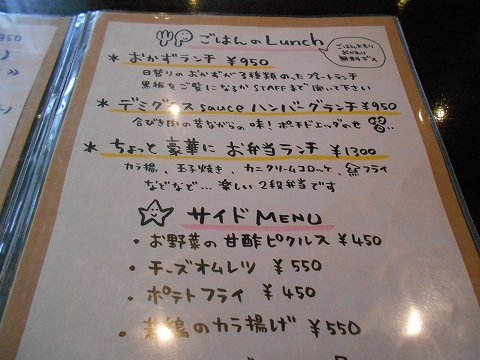 ごはんのLunch
ごはん大もり
おかわり
無料デス
* おかずランチ ¥950
日替りのおかずが3種類のったプレートランチ
黒板をご覧になるかSTAFFまで聞いて下さい
* デミグラスsauceハンバーグランチ ¥950
合びき肉の昔ながらの味!ポーチドエッグのせ
* ちょっと豪華にお弁当ランチ ¥1300
カラ揚、玉子焼き、カニクリームコロッケ、魚フライ
などなど...楽しい2段弁当です
サイドMENU
・お野菜の甘酢ピクルス ¥450
・チーズオムレツ ¥550
・ポテトフライ ¥450
・若鶏のカラ揚げ ¥550
950